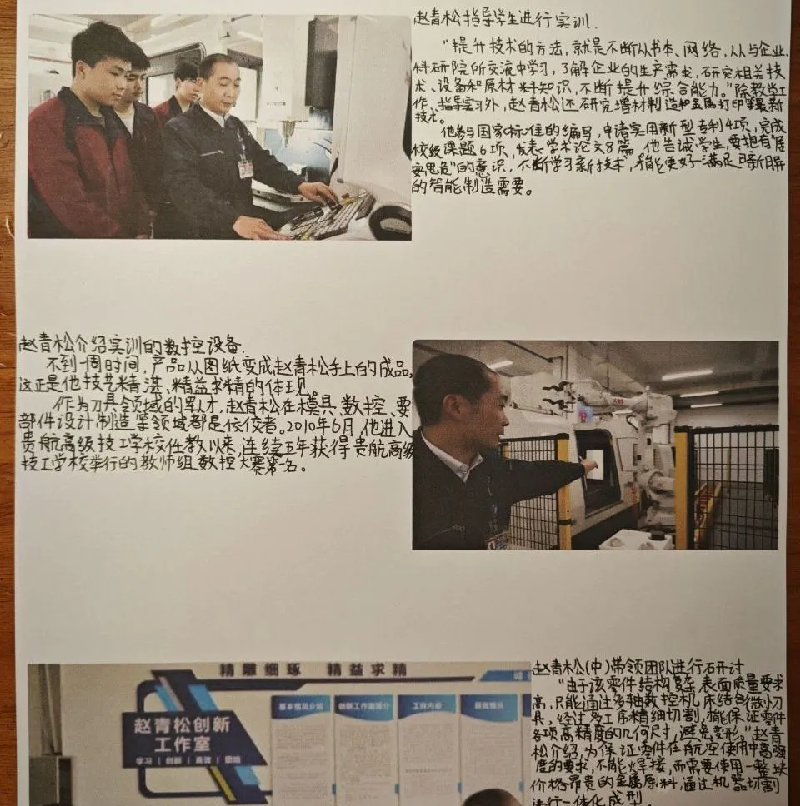 赵青松指导学生进行实训.
"提升技术的方法,就是不断从书本、网络,从与企业、
科研院所交流中学习,了解企业的生产需求,研究相关技
术、设备和原材料知识,不断提升综合能力。"除教学工
作、指导实习外,赵青松还研究增材制造和金属打印等最新
技术。
他参与国家标准的编写,申请实用新型专利4项,完成
校级课题6项,发表学术论文8篇。他告诫学生,要抱有"居
安思危"的意识,不断学习新技术,才能更好满足日新月异
的智能制造需要。
赵青松介绍实训的数控设备.
不到一周时间,产品从图纸变成赵青松手上的成品,
这正是他技艺精湛、精益求精的体现。
作为刀具领域的军人,赵青松在模具、数控、零
部件设计制造等领域都是佼佼者。2010年6月,他进入
贵航高级技工学校任教以来,连续五年获得贵航高级
技工学校举行的教师组数控大赛第一名。
精雕细琢 精益求精
赵青松创新
工作室
学习 | 创新 | 高效 | 团结
赵青松(中)带领团队进行研讨
"由于该零件结构复杂,表面质量要求
高,只能通过多轴数控机床结合微小刀
具,经过多工序精细切割,才能保证零件
各项高精度的几何尺寸,避免变形,"赵青
松介绍,为保证零件在航空使用中高强
度的要求,不能焊接,而需要使用一整块
价格昂贵的金属原料,通过机器切割
进行一体化成型